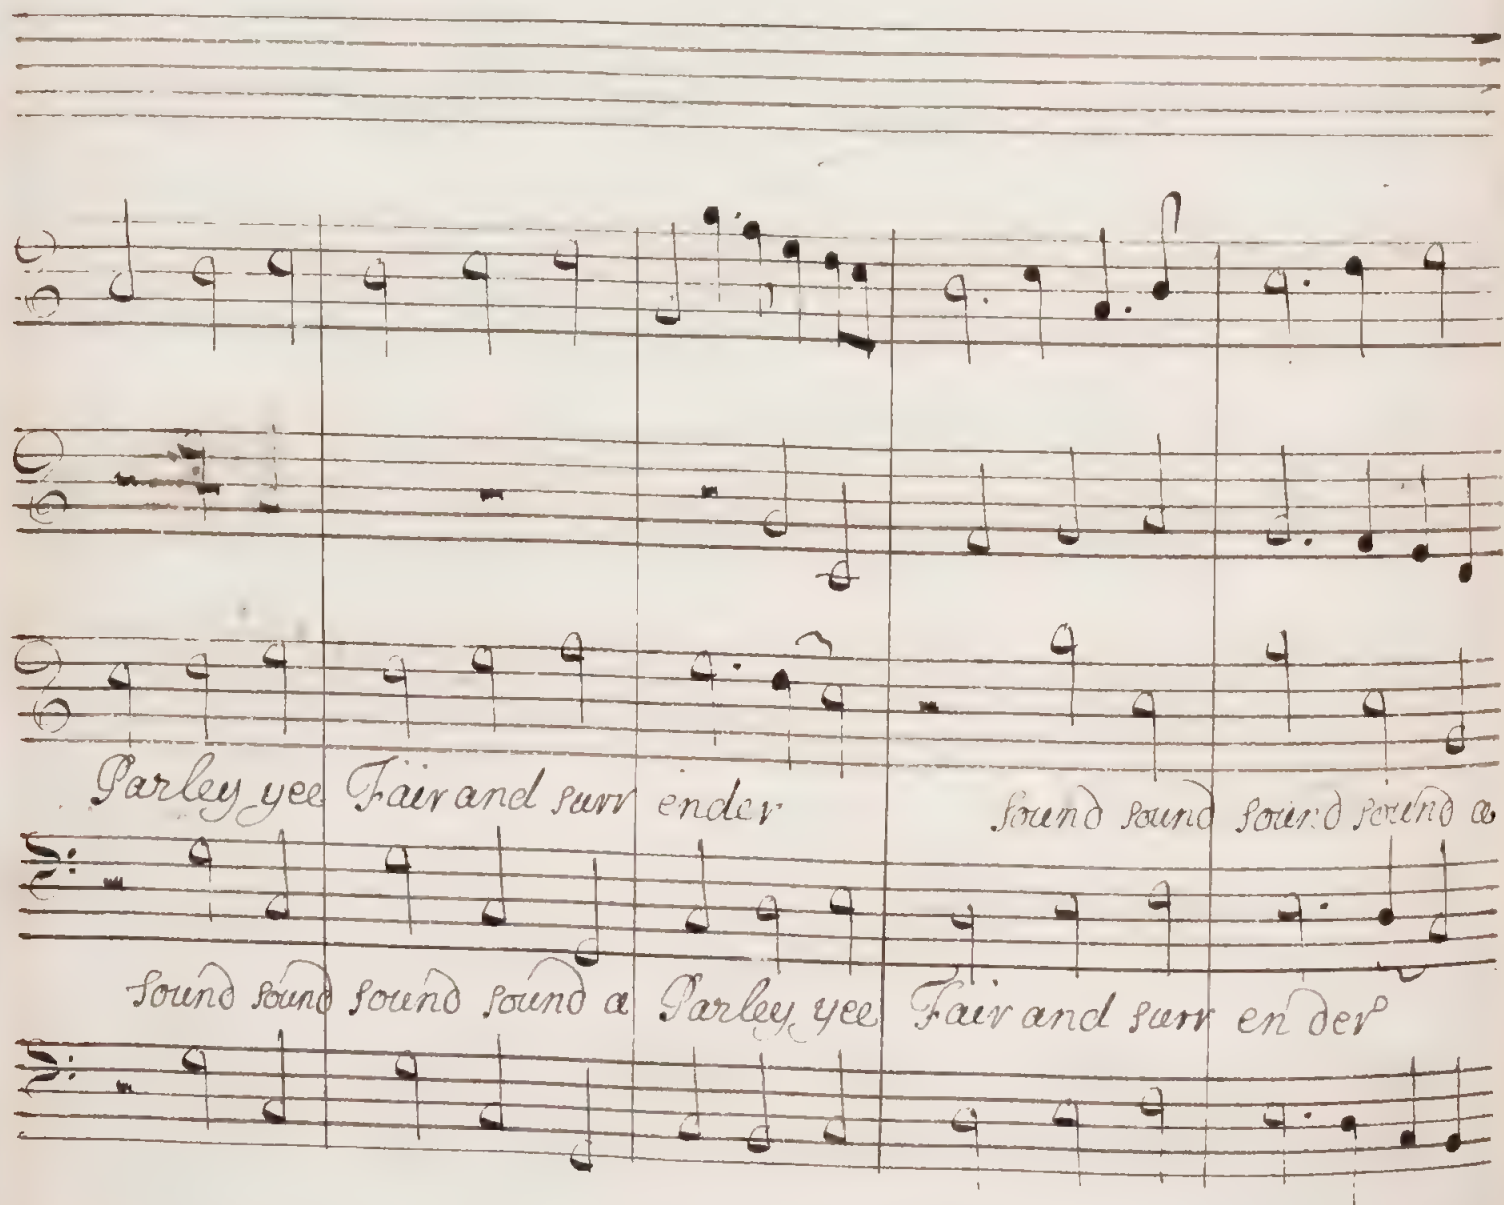 Parley yee Fair and surr ender sound sound sound sound a
sound sound sound sound a Parley yee Fair and surr en der